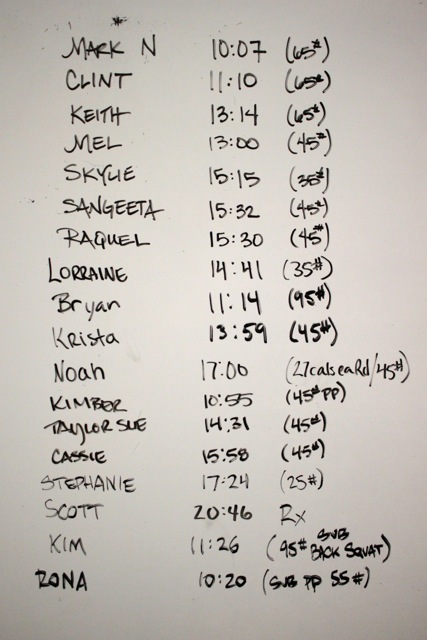 MARK N 10:07 (65#)
CLINT 11:10 (65#)
KEITH 13:14 (65#)
MEL 13:00 (45#)
SKYLIE 15:15 (35#)
SANGEETA 15:32 (45#)
RAQUEL 15:30 (45#)
LORRAINE 14:41 (35#)
Bryan 11:14 (95#)
Krista 13:59 (45#)
Noah 17:00 (27cals ea Rd/45#)
KIMBER 10:55 (45# PP)
TAYLOR SUE 14:31 (45#)
CASSIE 15:58 (45#)
STEPHANIE 17:24 (25#)
SCOTT 20:46 Rx
KIM 11:26 (95# SUB BACK SQUAT)
RONA 10:20 (SUB PP 55#)